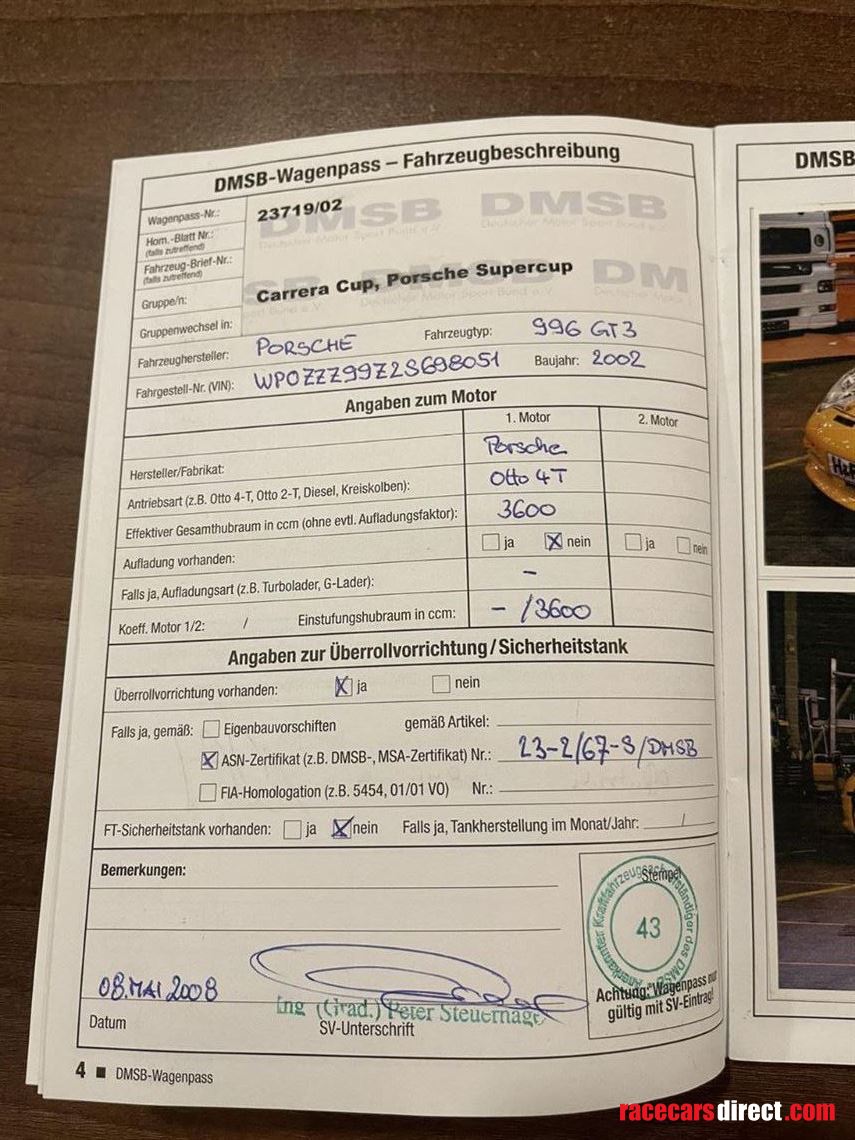 DMSB-Wagenpass – Fahrzeugbeschreibung
Wagenpass-Nr.: 23719/02
Hom.-Blatt Nr.:
(falls zutreffend)
Fahrzeug-Brief-Nr.:
(falls zutreffend)
Gruppe/n: Carrera Cup, Porsche Supercup
Gruppenwechsel in:
Fahrzeughersteller: PORSCHE Fahrzeugtyp: 996 GT3
Fahrgestell-Nr. (VIN): WP0ZZZ99Z2S698051 Baujahr: 2002
Angaben zum Motor
1. Motor 2. Motor
Hersteller/Fabrikat: Porsche
Antriebsart (z.B. Otto 4-T, Otto 2-T, Diesel, Kreiskolben): Otto 4T
Effektiver Gesamthubraum in ccm (ohne evtl. Aufladungsfaktor): 3600
Aufladung vorhanden: ja X nein ja nein
Falls ja, Aufladungsart (z.B. Turbolader, G-Lader): –
Koeff. Motor 1/2: / Einstufungshubraum in ccm: – /3600
Angaben zur Überrollvorrichtung/Sicherheitstank
Überrollvorrichtung vorhanden: X ja nein
Falls ja, gemäß: Eigenbauvorschriften gemäß Artikel:
X ASN-Zertifikat (z.B. DMSB-, MSA-Zertifikat) Nr.: 23-2/67-S/DMSB
FIA-Homologation (z.B. 5454, 01/01 VO) Nr.:
FT-Sicherheitstank vorhanden: ja X nein Falls ja, Tankherstellung im Monat/Jahr: /
Bemerkungen:
Stempel
Anerkannter Kraftfahrzeugsachverständiger des DMSB
43
Achtung: Wagenpass nur
gültig mit SV-Eintrag!
08. MAI 2008
Ing (Grad.) Peter Steuernagel
Datum SV-Unterschrift
4 ■ DMSB-Wagenpass
DMSB
DMSB DMSB
H&R
racecarsdirect.com